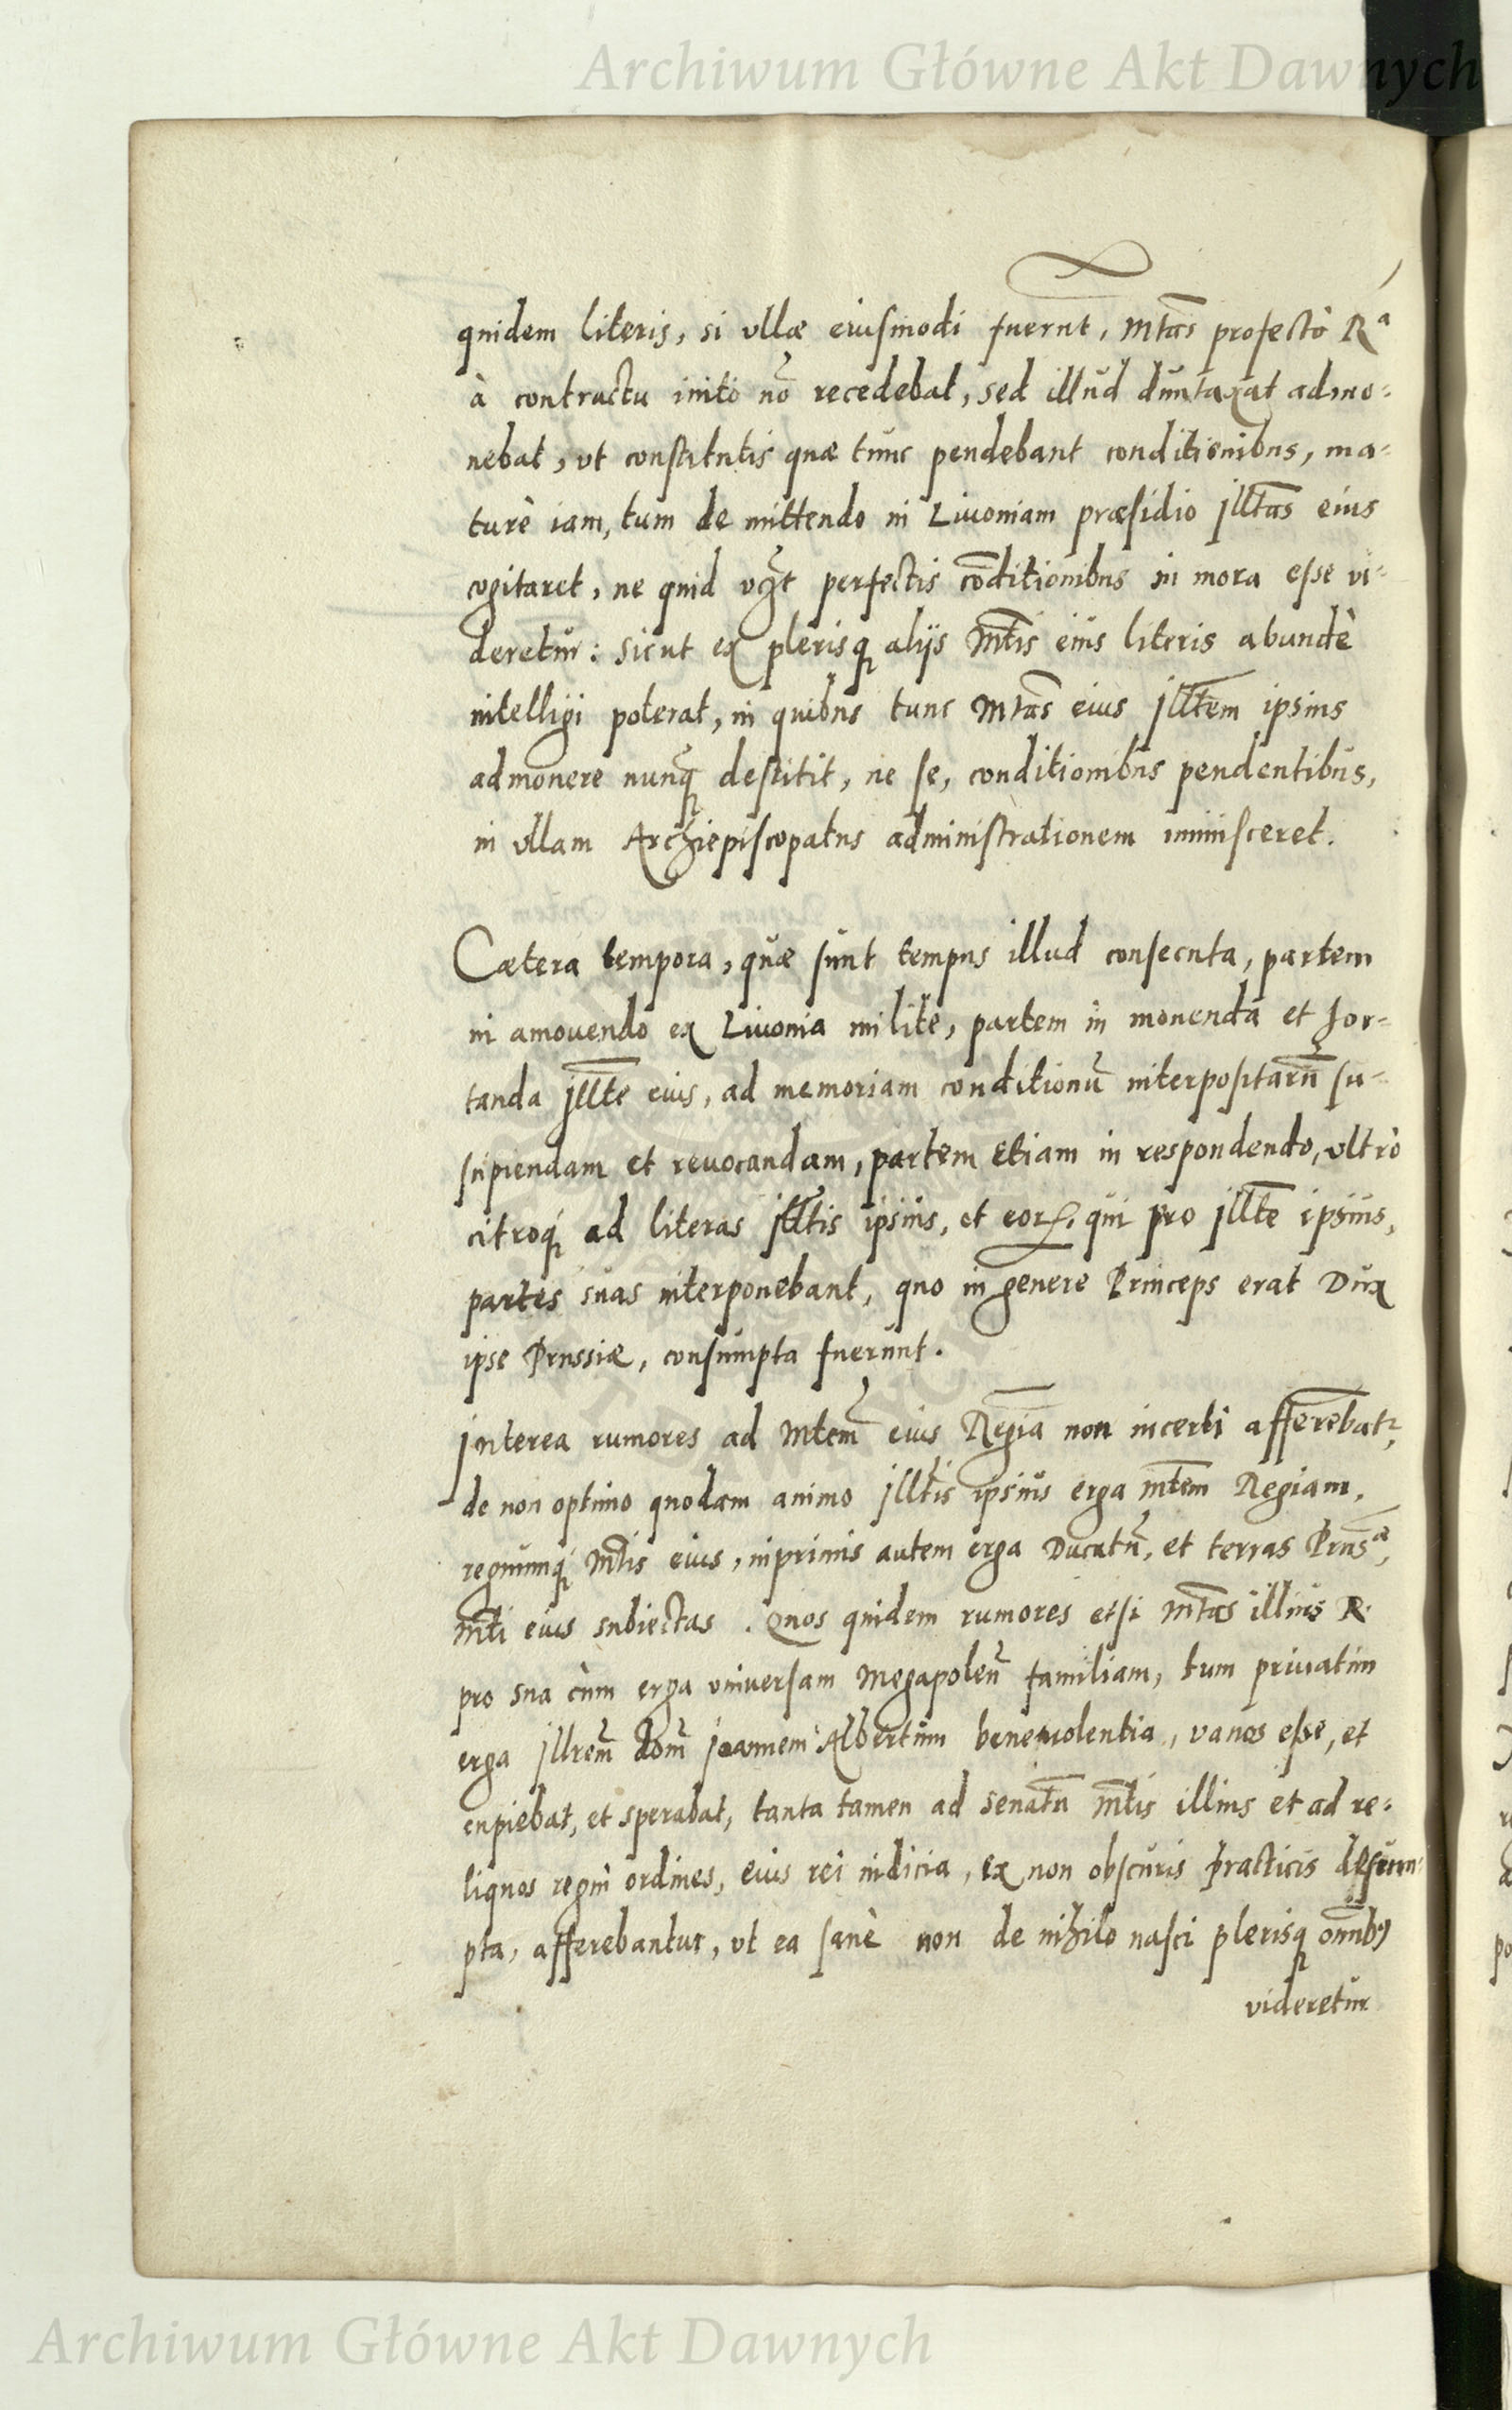 Archiwum Główne Akt Dawnych
quidem literis, si vllæ eiusmodi fuerūt, Mtas profectò Rª
à contractu inito nō recedebat, sed illud duntaxat admo=
nebat, vt constitutis quæ tunc pendebant conditionibus, ma=
turè iam, tum de mittendo in Liuoniam præsidio Jlltas eius
cogitaret, ne quid perfectis cōditionibus in mora esse vi=
deretur: sicut ex plerisq alijs Mtis eius literis abundè
intelligi poterat, in quibus tunc Mtas eius Jlltem ipsius
admonere nunq̄ destitit, ne se, conditionibus pendentibus,
in vllam Archiepiscopatus administrationem immisceret.
Cætera tempora, quæ sunt tempus illud consecuta, partem
in amouendo ex Liuonia milite, partem in monenda et hor=
tanda Jllte eius, ad memoriam conditionū interpositarū su=
scipiendam et reuocandam, partem etiam in respondendo, vltrò
citroq́ ad literas Jlltis ipsius, et eorꝝ, qui pro Jllte ipsius,
partes suas interponebant, quo in genere Princeps erat Dux
ipse Prussiæ, consumpta fuerunt.
Interea rumores ad Mtem eius Regiā non incerti afferebātr,
de non optimo quodam animo Jlltis ipsius erga Mtem Regiam,
regnumq́ Mtis eius, inprimis autem erga Ducatū, et terras Prusæ,
Mti eius subiectas. Quos quidem rumores etsi Mtas illius R.
pro sua cùm erga vniuersam Megapolen̄ familiam, tum priuatim
erga Jllrem̄ dom̄ Joannem Albertum beneuolentia, vanos esse, et
cupiebat, et sperabat, tanta tamen ad senatū Mtis illius et ad re=
liquos regni ordines, eius rei indicia, ex non obscuris practicis desum=
pta, afferebantur, vt ea sanè non de nihilo nasci plerisq om̄ib9
videretur
Archiwum Główne Akt Dawnych